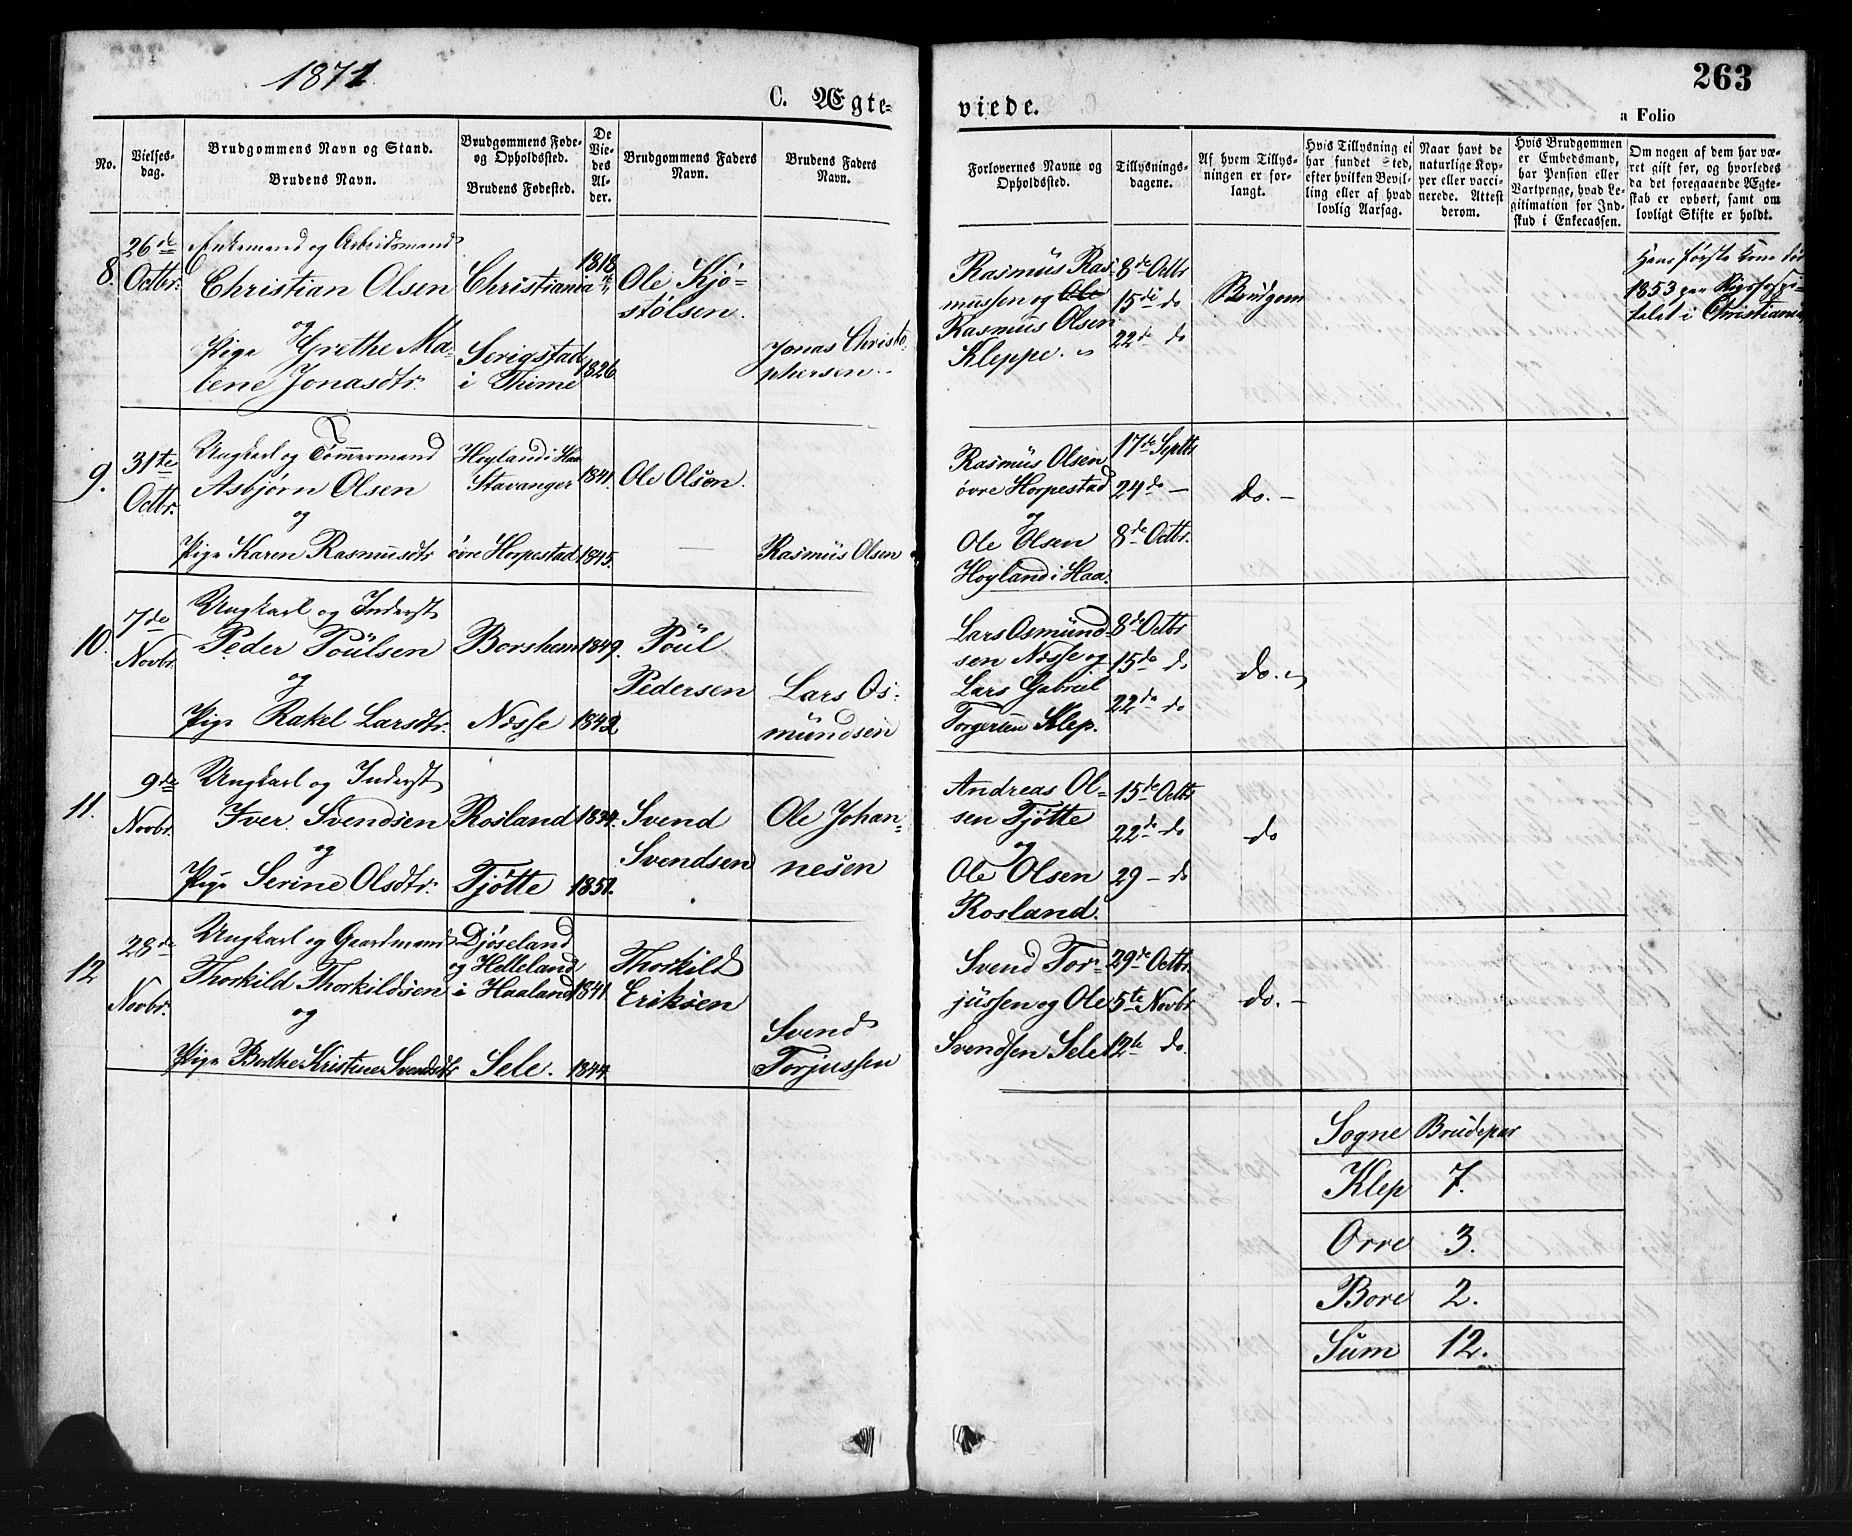 1871
C. Ægte-
viede.
263
a Folio
No.
Vielses-
dag.
Brudgommens Navn og Stand.
Brudens Navn.
Brudgommens Føde-
og Opholdssted.
Brudens Fødested.
De
Vie-
des
Al-
der.
Brudgommens Faders
Navn.
Brudens Faders
Navn.
Forlovernes Navne og
Opholdssted.
Tillysnings-
dagene.
Af hvem Tillys-
ningen er for-
langt.
Hvis Tillysning ei
har fundet Sted,
efter hvilken Bevil-
ling eller af hvad
lovlig Aarsag.
Naar havt de
naturlige Kop-
per eller vacci-
nerede. Attest
derom.
Hvis Brudgommen
er Embedsmand,
har Pension eller
Vartpenge, hvad Le-
gitimation for Ind-
skud i Enkecassen.
Om nogen af dem har væ-
ret gift før, og hvorledes
da det foregaaende Ægte-
skab er ophørt, samt om
lovligt Skifte er holdt.
8.
26de
Octbr.
Enkemand og Arbeidsmand
Christian Olsen
og
Pige Grethe Ma-
lene Jonasdtr.
Christiania
Serigstad
i Thime
1818
1826.
Ole Kjø-
stølsen.
Jonas Christo-
phersen
Rasmus Ras-
mussen og Ole
Rasmus Olsen
Kleppe.
8de Octbr
15de do
22de do
Brudgom
Hans første Kone død
1853 paa Rigshospi-
talet i Christiania
9.
31te
Octbr.
Ungkarl og Tømmermand
Asbjørn Olsen
og
Pige Karen Rasmusdtr
Høyland i Haa
Stavanger
øvre Horpestad
1841.
1845.
Ole Olsen.
—
Rasmus Olsen
Rasmus Olsen
øvre Horpestad
og
Ole Olsen
Høyland i Haa.
17de Septbr
24de —
8de Octbr.
do. –
10.
7de
Novbr.
Ungkarl og Inderst
Peder Poulsen
og
Pige Rakel Larsdtr.
Borshem
Nosse
1849.
1842
Poul
Pedersen
Lars Os-
mundsen
Lars Osmund-
sen Nosse og
Lars Gabriel
Torgersen Klep.
8de Octbr
15de do
22de do
do.
11.
9de
Novbr.
Ungkarl og Inderst
Iver Svendsen
og
Pige Serine Olsdtr.
Rosland
Tjøtte
1834.
1851.
Svend
Svendsen
Ole Johan-
nesen
Andreas Ol-
sen Tjøtte
og
Ole Olsen
Rosland.
15de Octbr
22de do
29 – do
do
12
28de
Novbr.
Ungkarl og Gaardmand
Thorkild Thorkildsen
og
Pige Berthe Kristine Svendsdtr
Djøseland
og Helleland
i Haaland
Sele.
1841.
1844.
Thorkild
Eriksen
Svend
Torjussen
Svend Tor-
jussen og Ole
Svendsen Sele
29de Octbr.
5te Novbr
12te do.
do. –
Sogne Brudepar
Klep 7.
Orre 3.
Bore 2.
Sum 12.